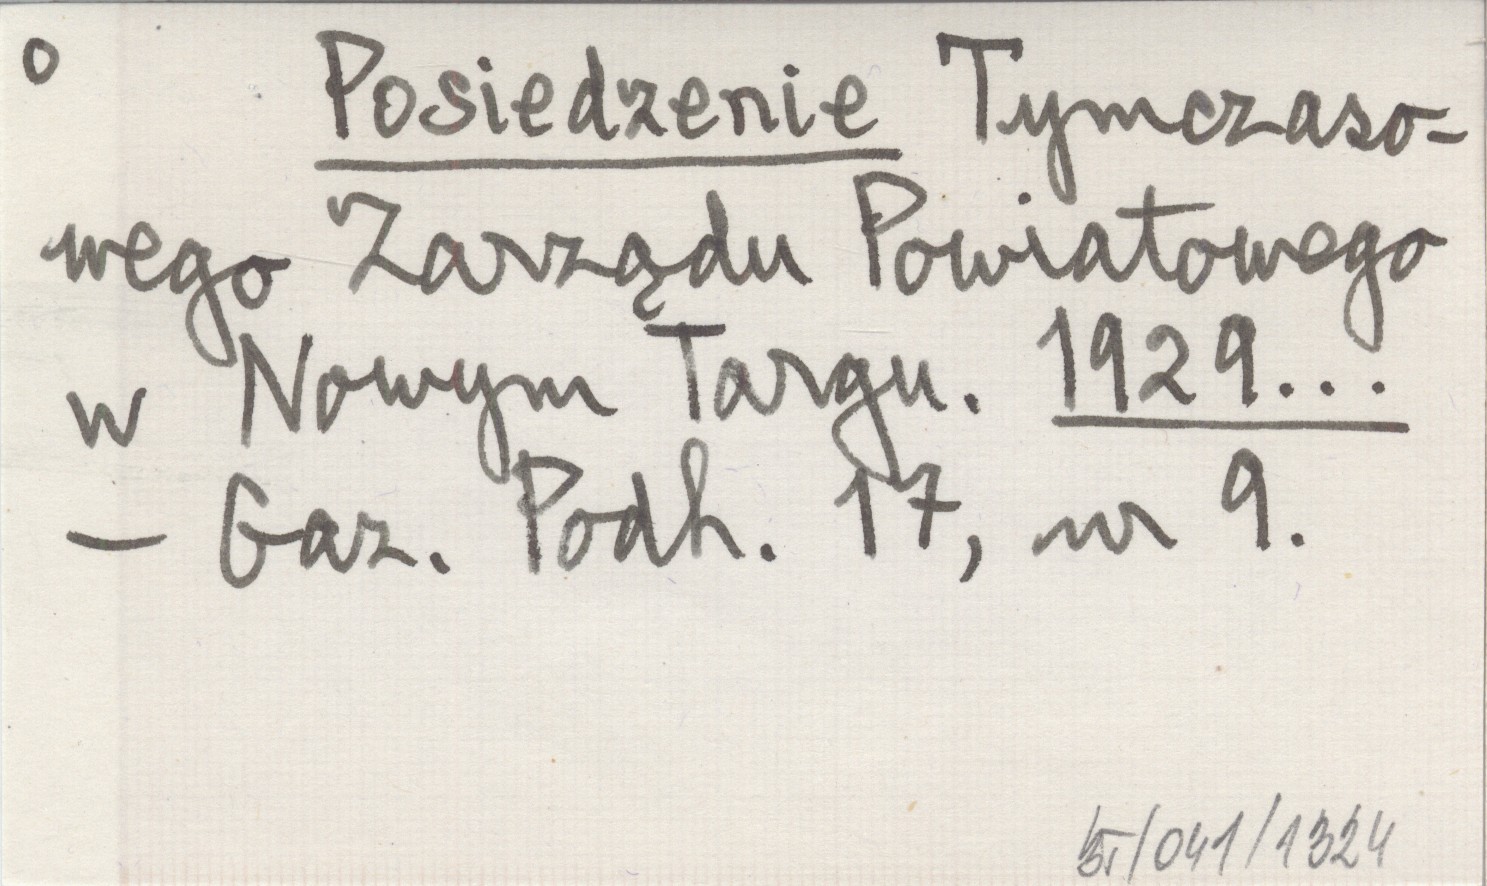 o Posiedzenie Tymczaso-
wego Zarządu Powiatowego
w Nowym Targu. 1929...
– Gaz. Podh. 17, nr 9.
/041/1324